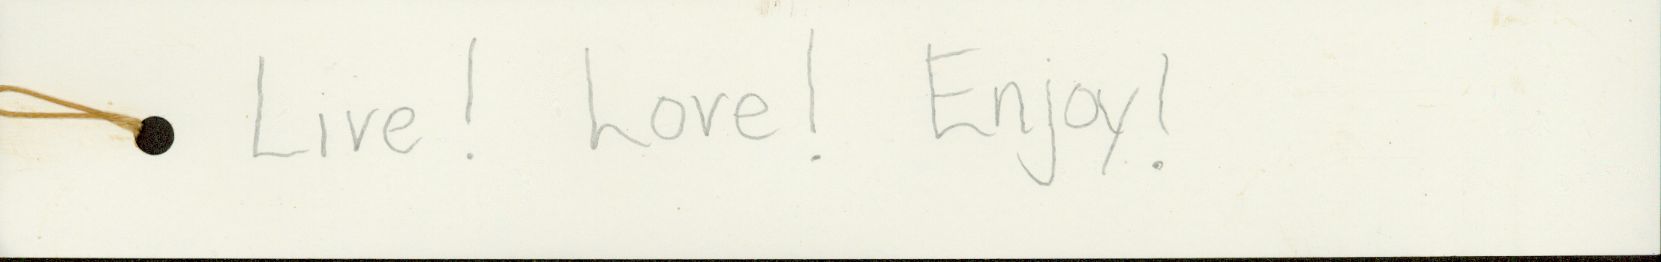 Live! Love! Enjoy!